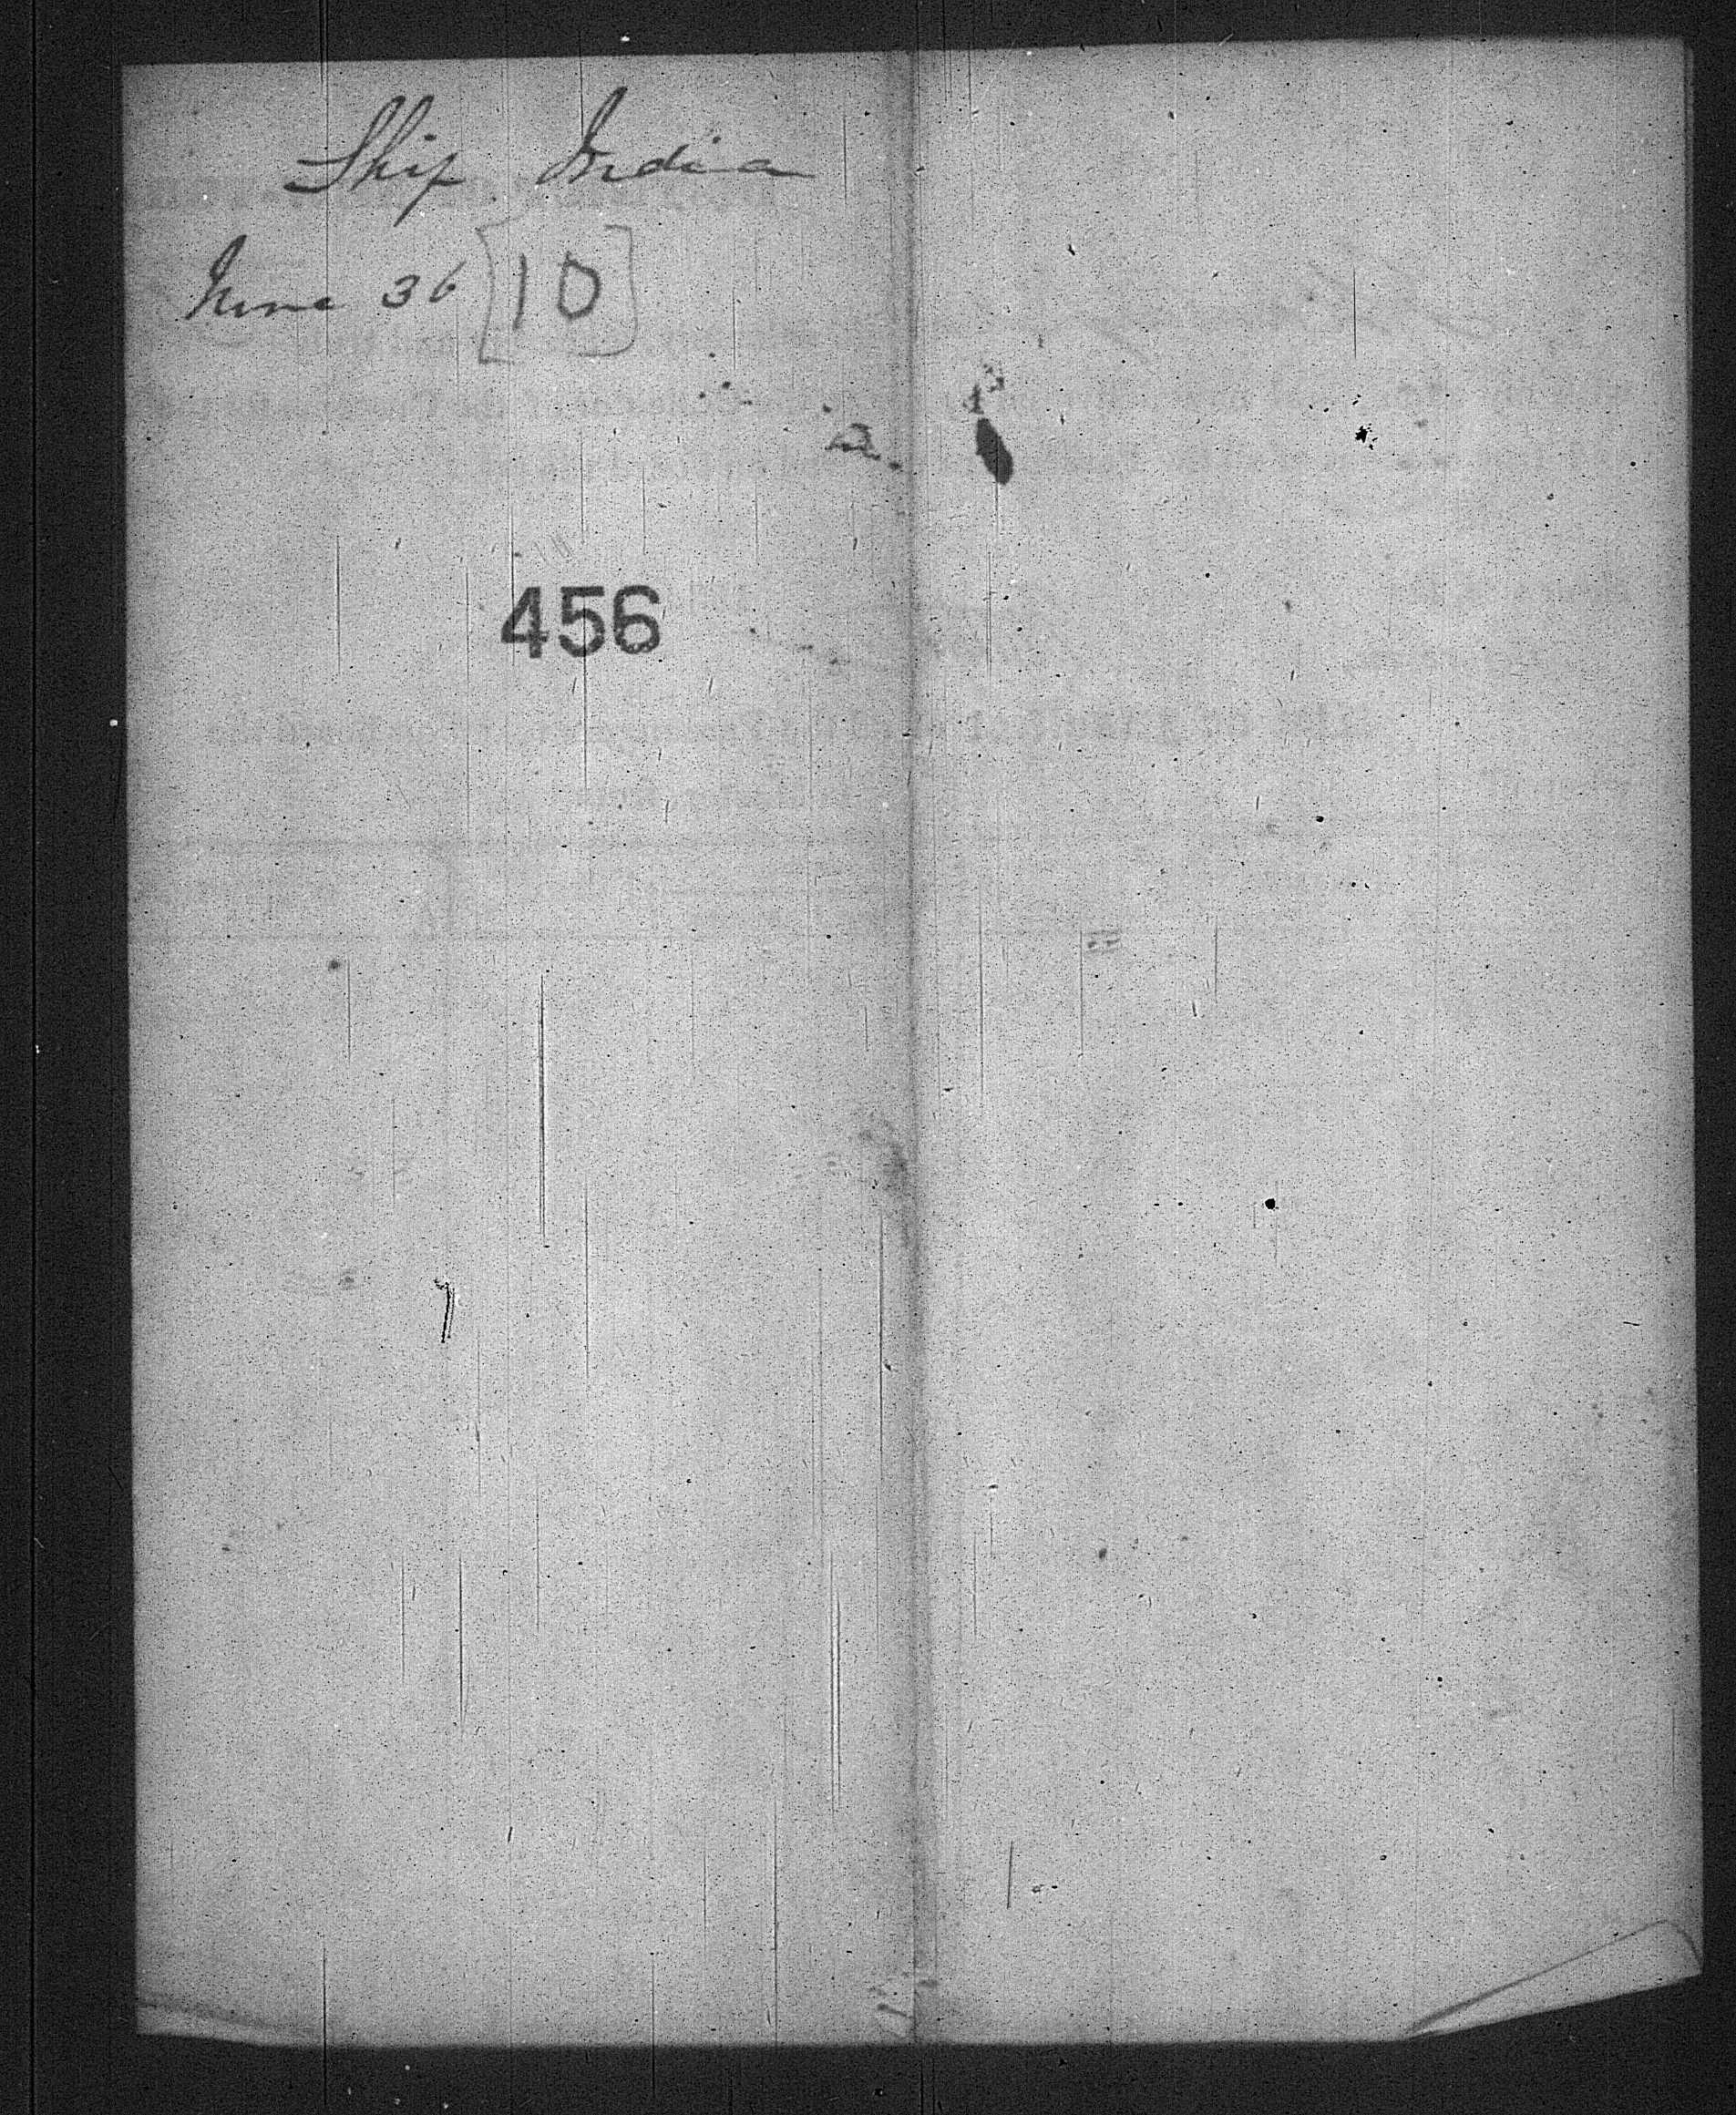 Ship India
June 36 [10]
456